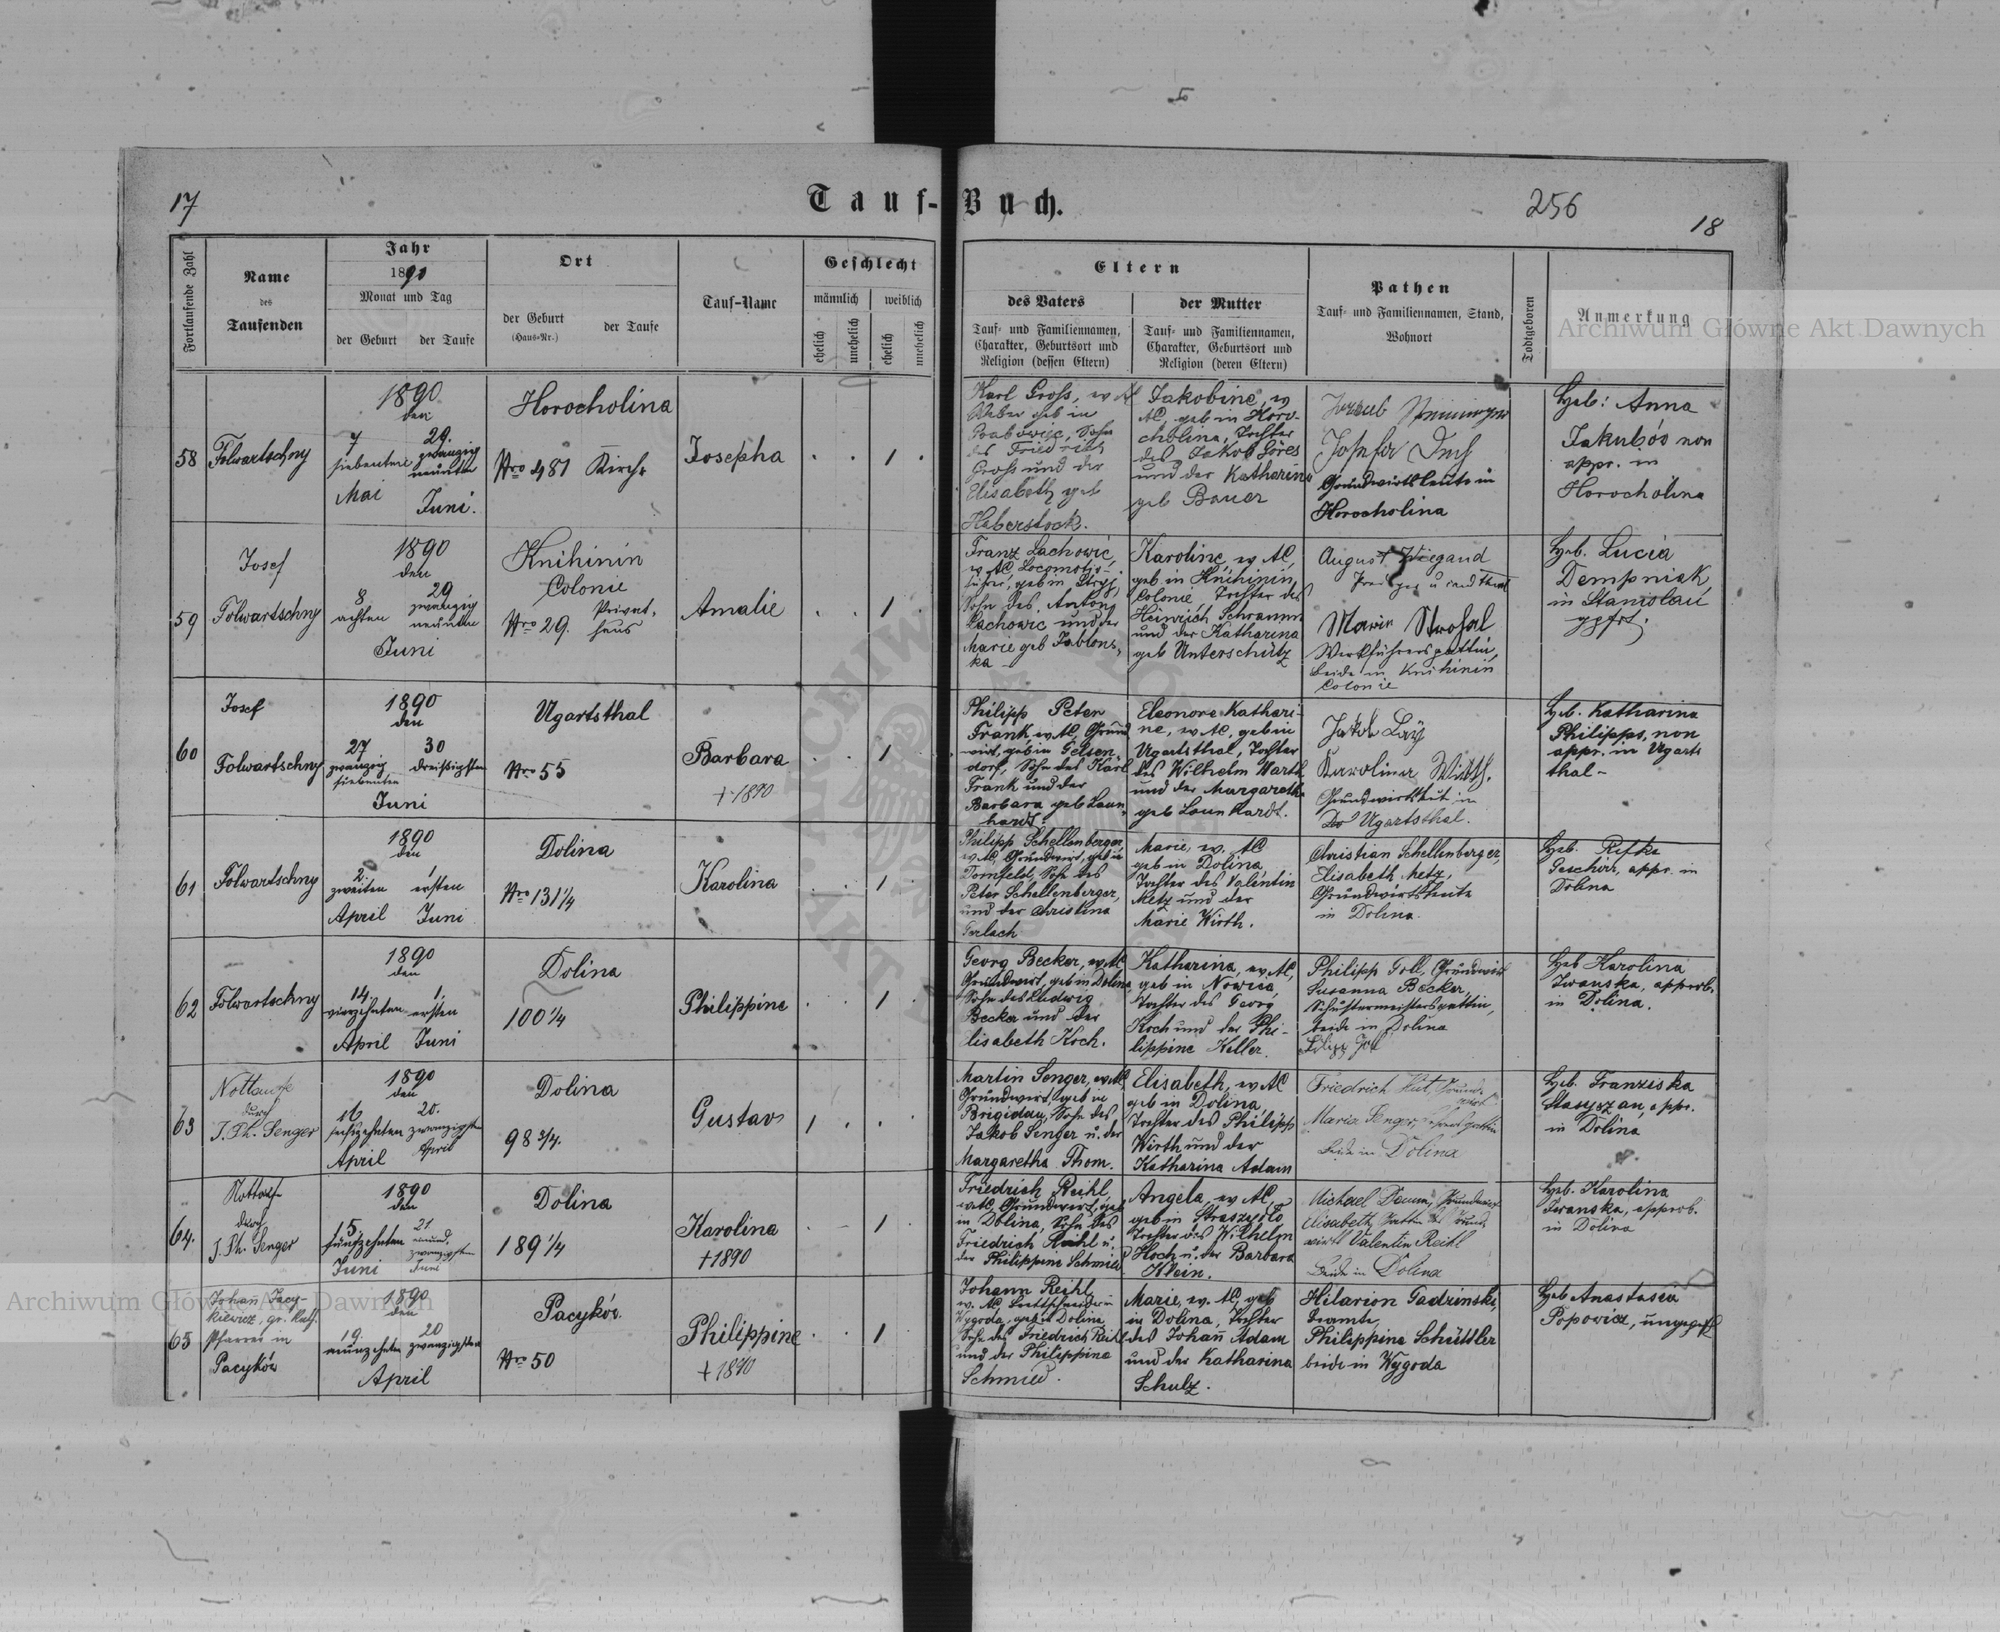 17
Tauf-Buch.
256
18
Fortlaufende Zahl
Name
des
Taufenden
Jahr
1890
Monat und Tag
der Geburt
der Taufe
Ort
der Geburt
(Haus-Nr.)
der Taufe
Tauf-Name
Geschlecht
männlich
weiblich
ehelich
unehelich
ehelich
unehelich
Eltern
des Vaters
Tauf- und Familiennamen,
Charakter, Geburtsort und
Religion (dessen Eltern)
der Mutter
Tauf- und Familiennamen,
Charakter, Geburtsort und
Religion (deren Eltern)
Pathen
Tauf- und Familiennamen, Stand,
Wohnort
Todtgeboren
Anmerkung
Archiwum Główne Akt Dawnych
58
Folwartschny
1890
den
7
siebenten
Mai
29.
zwanzig
neunten
Juni.
Horocholina
Nro 481 Kirche
Josepha
1
Karl Gross, ev AC
Weber geb in
Sohn
des Friedrich
Gross und der
Elisabeth geb
Haberstock.
Jakobine, ev
AC, geb in Horo-
cholina, Tochter
des Jakob Göres
und der Katharina
geb Bauer
Grundwirtsleute in
Horocholina
Heb: Anna
Jakubów non
appr. in
Horocholina
59
Josef
Folwartschny
1890
den
8
achten
29
zwanzig
neunten
Juni
Knihinin
Colonie
Nro 29. Privat-
haus
Amalie
1
Franz Lachowic,
ev AC, Locomotiv-
führer, geb in Stryj,
Sohn des Anton
Lachowic und der
Marie geb Jablons-
ka
Karoline, ev AC,
geb in Knihinin,
Colonie, Tochter des
Heinrich Schramm
und der Katharina
geb Unterschütz
August Wiegand
Maria Strohal
Werkführersgattin,
beide in Knihinin
Colonie
Heb. Lucia
Dempniak
in Stanislau
gepfrt.
60
Josef
Folwartschny
1890
den
27
zwanzig
siebenten
30
dreißigsten
Juni
Ugartsthal
Nro 55
Barbara
+ 1890
1
Philipp Peter
Frank, ev AC, Grund
wirt, geb in Gelsen
dorf, Sohn des Karl
Frank und der
Barbara geb Laun-
hardt.
Eleonore Kathari-
ne, ev AC, geb in
Ugartsthal, Tochter
des Wilhelm Warth
und der Margarethe
geb Launhardt.
Jakob Lay
Karolina Wirth.
Grundwirtsleut in
Ugartsthal.
Heb. Katharina
Philipps, non
appr. in Ugarts
thal -
61
Folwartschny
1890
den
2.
zweiten
April
1
ersten
Juni
Dolina
Nro 131 1/4
Karolina
1
Philipp Schellenberger,
ev AC, Grundwirt, geb in
Dornfeld, Sohn des
Peter Schellenberger,
und der Christina
Gerlach
Marie, ev. AC
geb in Dolina
Tochter des Valentin
Metz und der
Marie Wirth.
Christian Schellenberger,
Elisabeth Metz,
Grundwirtsleute
in Dolina.
Heb. Rifka
Geschirr, appr. in
Dolina
62
Folwartschny
1890
den
14.
vierzehnten
April
1.
ersten
Juni
Dolina
100 1/4
Philippine
1
Georg Becker, ev AC,
Grundwirt, geb in Dolina,
Sohn des Ludwig
Becker und der
Elisabeth Koch.
Katharina, ev AC,
geb in Nowica
Tochter des Georg
Koch und der Phi-
lippine Keller.
Philipp Goll, Grundwirt
Susanna Becker,
Schustermeistersgattin,
beide in Dolina
Heb Karolina
Iwanska, approb.
in Dolina.
63
Nottaufe
durch
J. Ph. Senger
1890
den
16
sechzehnten
April
20.
zwanzigsten
April
Dolina
98 3/4.
Gustav
1
Martin Senger, ev AC,
Grundwirt, geb in
Brigidau, Sohn des
Jakob Senger u. der
Margaretha Thom.
Elisabeth, ev AC
geb in Dolina,
Tochter des Philipp
Wirth und der
Katharina Adam
Maria Senger,
beide in Dolina
Heb. Franziska
Stasyszan, appr.
in Dolina
64.
Nottauf
durch
J. Ph. Senger
1890
den
15.
fünfzehnten
Juni
21.
einund-
zwanzigsten
Juni
Dolina
189 1/4
Karolina
+ 1890
1
Friedrich Reihl,
ev AC, Grundwirt, geb
in Dolina, Sohn des
Friedrich Reihl u.
der Philippine Schmied
Angela, ev AC,
geb in Straszydło
Tochter des Wilhelm
Koch u. der Barbara
Klein.
Michael Daum, Grundwirt
Elisabeth, Gattin des Grund-
wirts Valentin Reihl
beide in Dolina
Heb. Karolina
Iwanska, approb.
in Dolina
65
Johann Jacy-
kiewicz, gr. Kath.
Pfarrer in
Pacyków
1890
den
19.
neunzehnten
20
zwanzigsten
April
Pacyków.
Nro 50
Philippine
+ 1890
1
Johann Reihl,
ev. AC, Brettschneider in
Wygoda, geb in Dolina,
Sohn des Friedrich Reihl
und der Philippine
Schmied.
Marie, ev. AC, geb
in Dolina, Tochter
des Johann Adam
und der Katharina
Schulz.
Hilarion Gadzinski,
Beamte,
Philippine Schüttler
beide in Wygoda
Heb Anastasia
Popowicz, ungeprft
Archiwum Główne Akt Dawnych